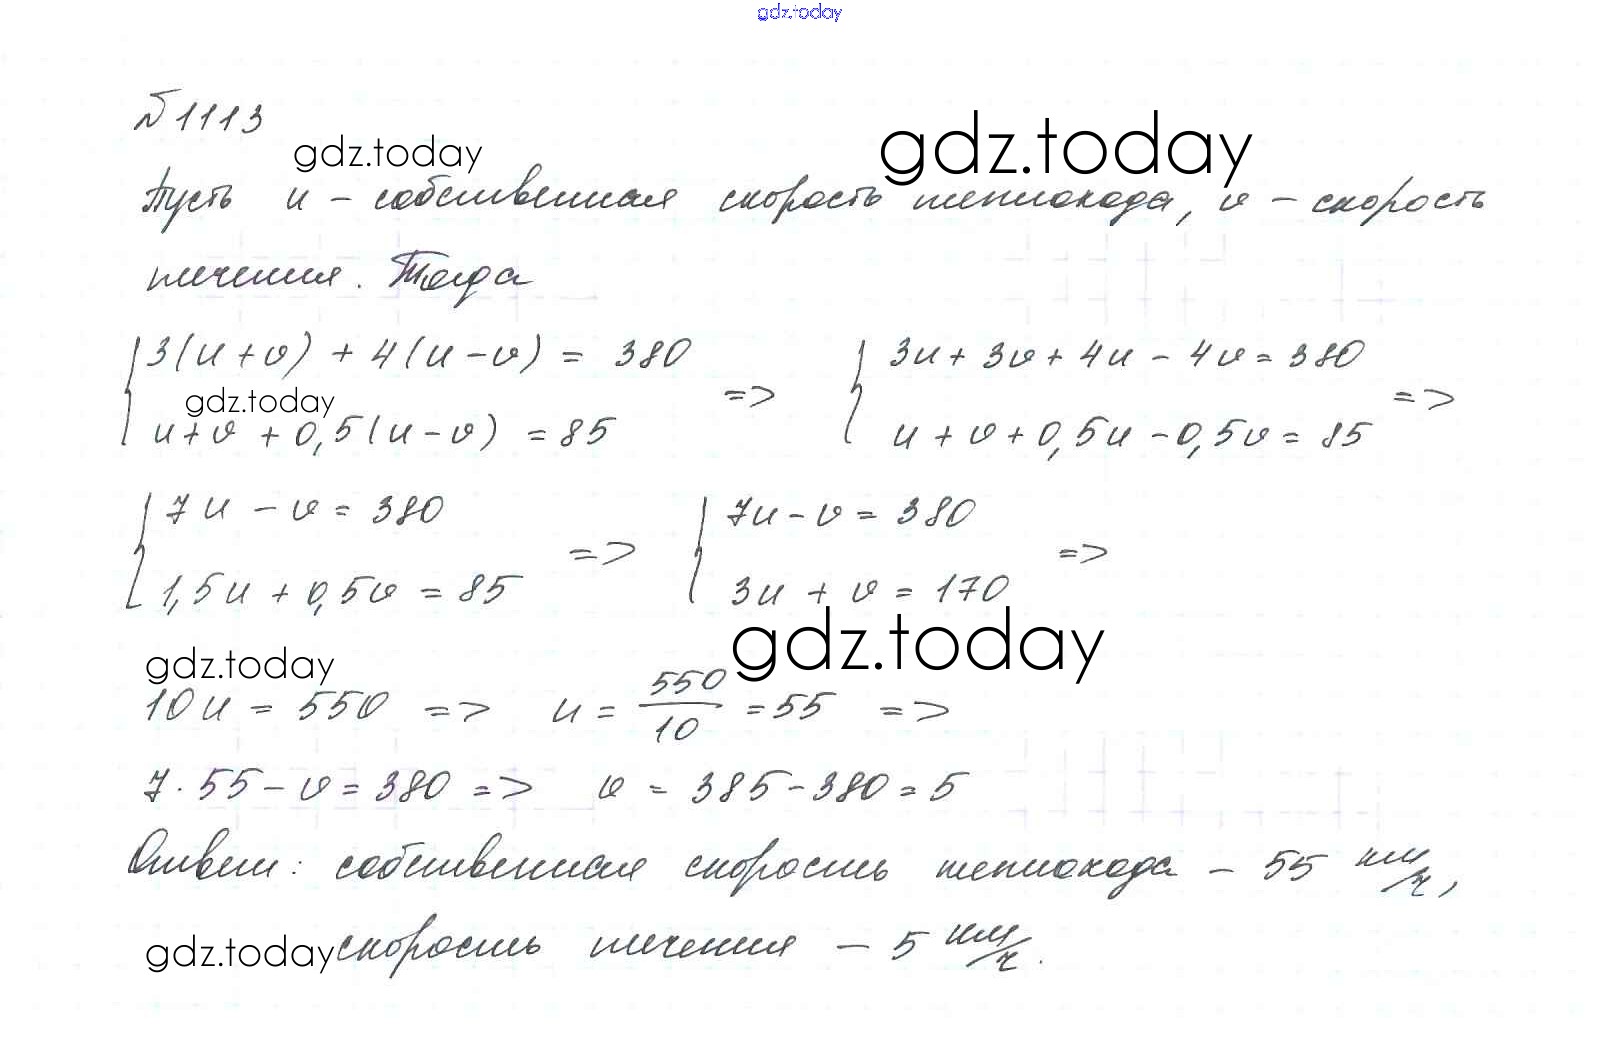 gdz.today
№ 1113
gdz.today gdz.today
Пусть u – собственная скорость теплохода, v – скорость
течения. Тогда
3(u+v) + 4(u-v) = 380 => 3u + 3v + 4u - 4v = 380 =>
gdz.today
u+v + 0,5(u-v) = 85 u + v + 0,5u - 0,5v = 85
7u - v = 380 => 7u - v = 380 =>
1,5u + 0,5v = 85 3u + v = 170
gdz.today gdz.today
10u = 550 => u = 550/10 = 55 =>
7·55 - v = 380 => v = 385 - 380 = 5
Ответ: собственная скорость теплохода – 55 км/ч,
gdz.today скорость течения – 5 км/ч.